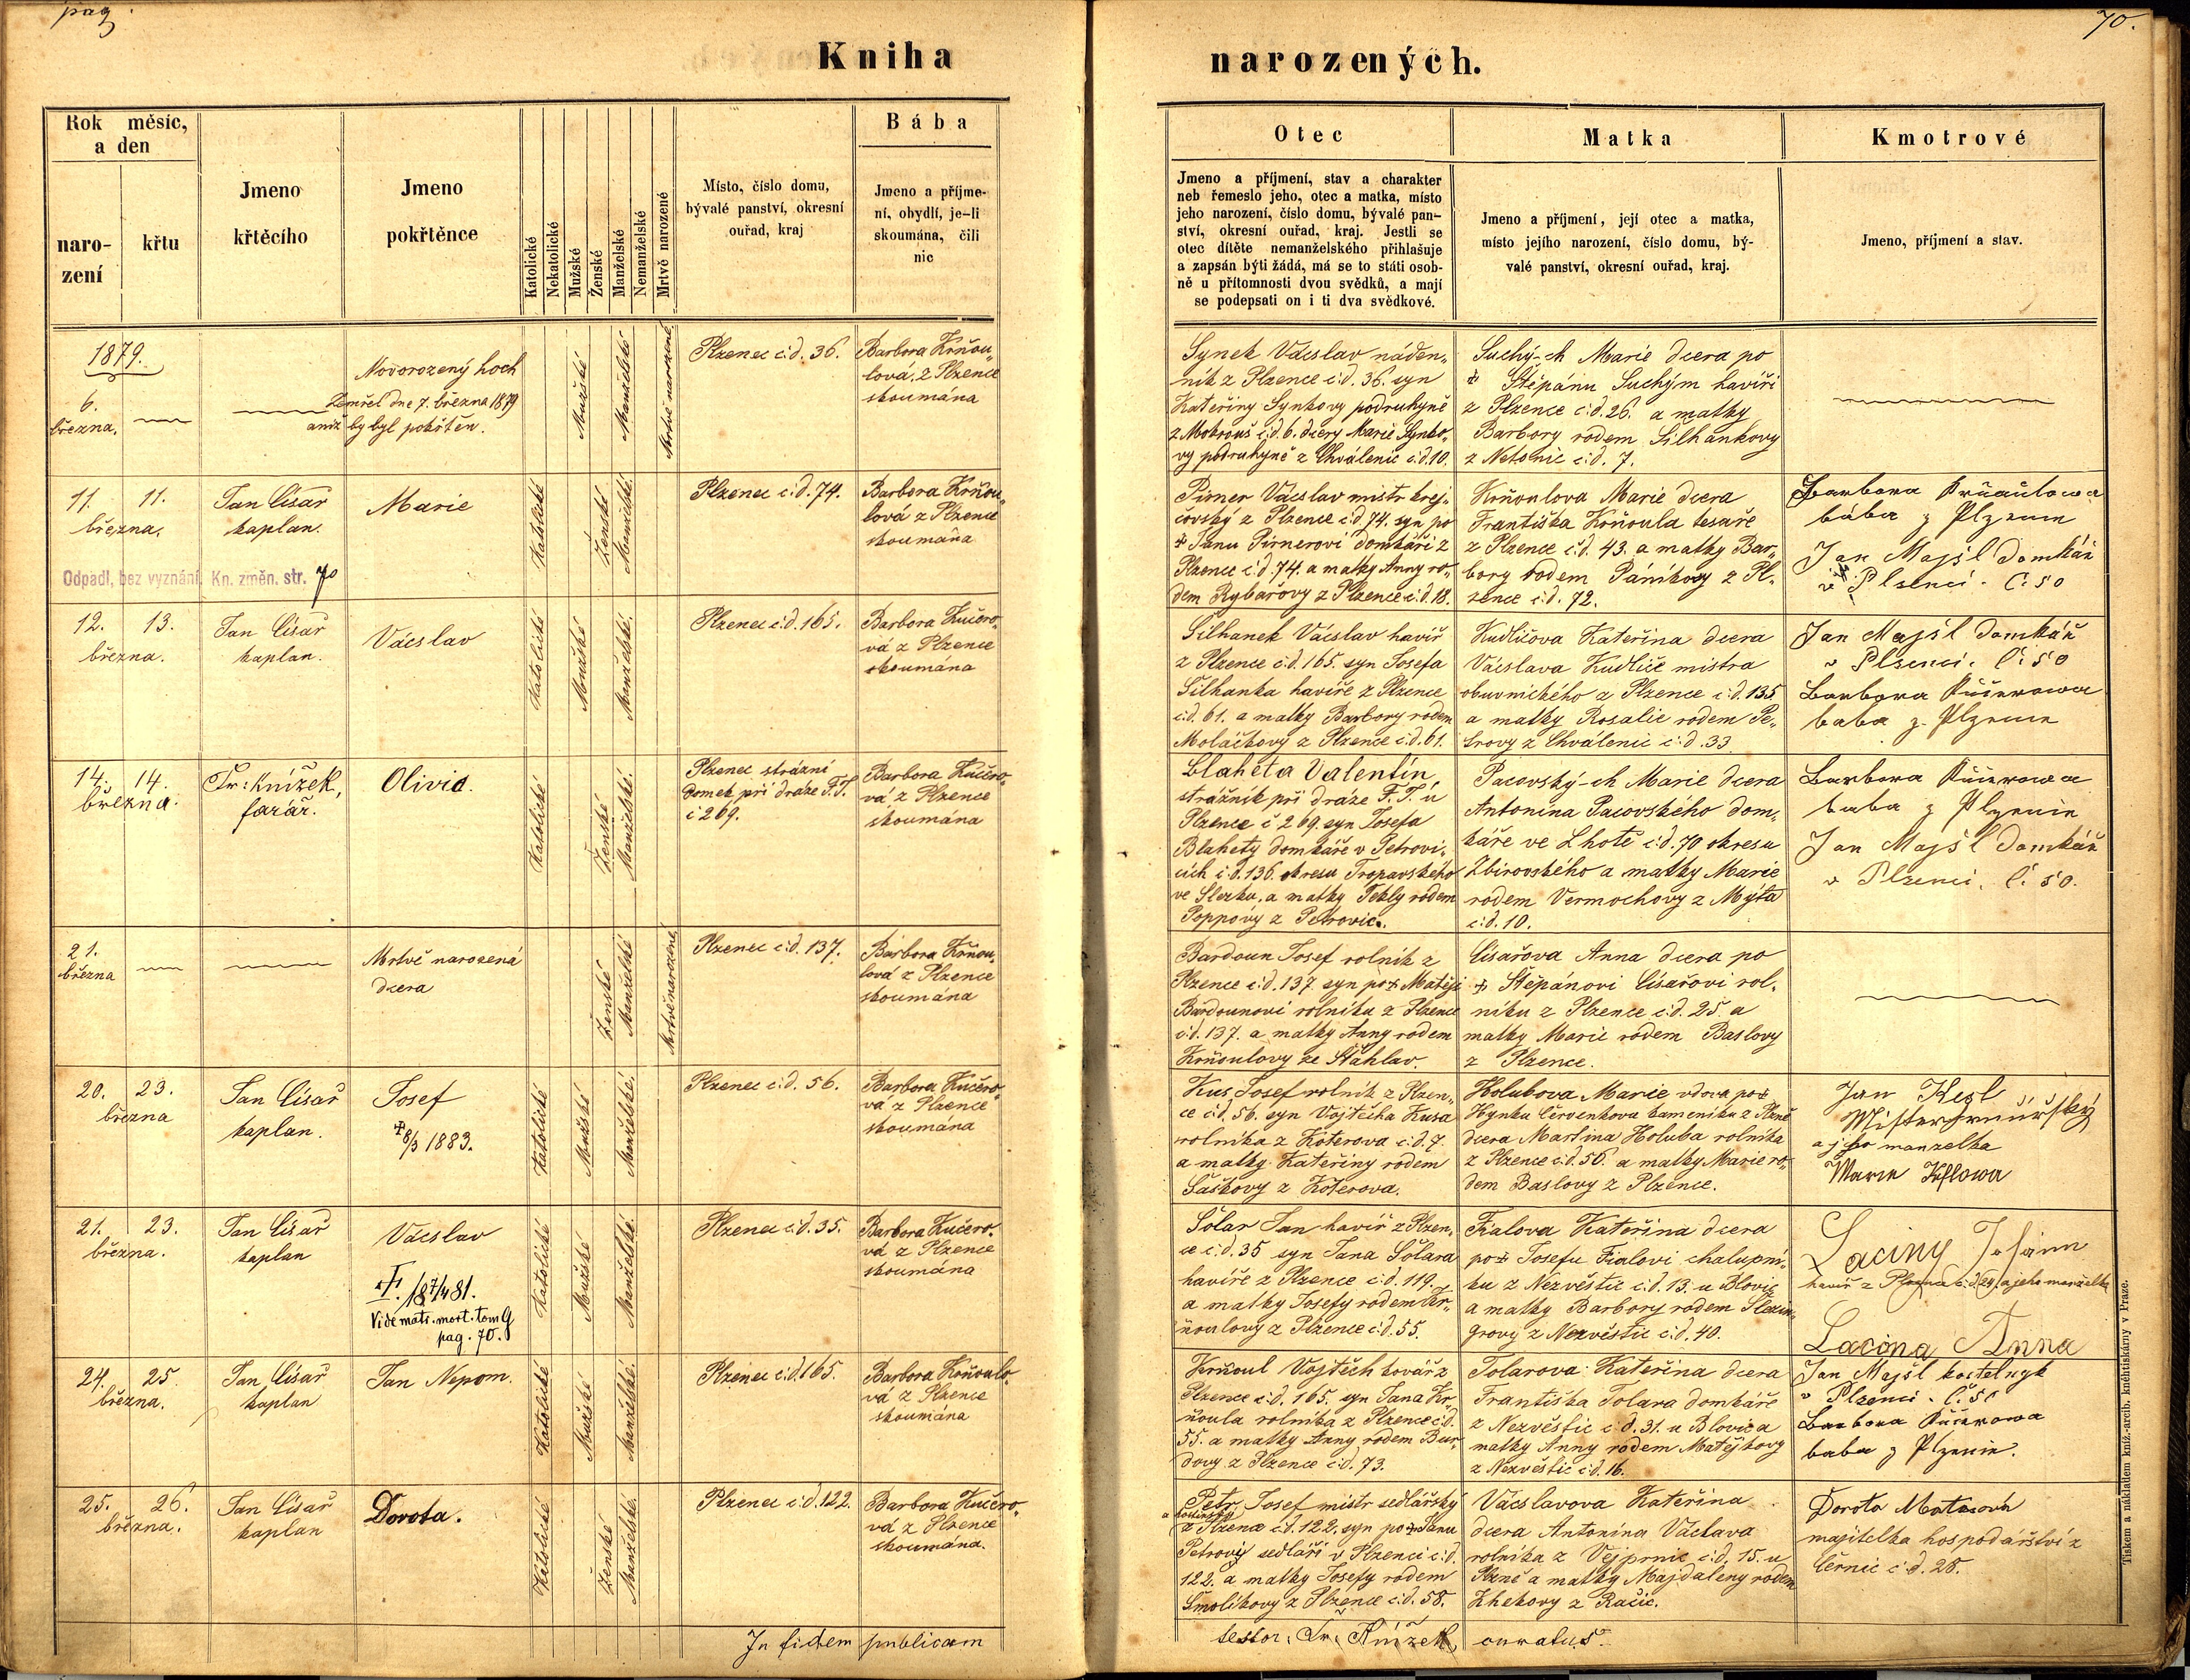 pag.
70.
Kniha
narozených.
Rok měsíc,
a den
naro-
zení
křtu
Jmeno
křtěcího
Jmeno
pokřtěnce
Katolické
Nekatolické
Mužské
Ženské
Manželské
Nemanželské
Mrtvě narozené
Místo, číslo domu,
bývalé panství, okresní
ouřad, kraj
Bába
Jmeno a příjme-
ní, obydlí, je-li
skoumána, čili
nic
Otec
Jmeno a příjmení, stav a charakter
neb řemeslo jeho, otec a matka, místo
jeho narození, číslo domu, bývalé pan-
ství, okresní ouřad, kraj. Jestli se
otec dítěte nemanželského přihlašuje
a zapsán býti žádá, má se to státi osob-
ně u přítomnosti dvou svědků, a mají
se podepsati on i ti dva svědkové.
Matka
Jmeno a příjmení, její otec a matka,
místo jejího narození, číslo domu, bý-
valé panství, okresní ouřad, kraj.
Kmotrové
Jmeno, příjmení a stav.
1879.
6.
března.
Novorozený hoch
Zemřel dne 7. března 1879
aniž by byl pokřtěn.
Mužské
Manželské
Mrtvě narozené
Plzenec č:d. 36.
Barbora Krňou„
lová z Plzence
skoumána
Synek Václav náden„
ník z Plzence č:d. 36. syn
Kateřiny Synkovy podruhyně
z Mokrouš č:d. 6. dcery Marie Synko„
vy podruhyně z Chválenic č:d. 10.
Suchý-ch Marie dcera po
✝ Štěpánu Suchým havíři
z Plzence č:d. 26. a matky
Barbory rodem Silhankovy
z Netonic č:d. 7.
11. 11.
března.
Jan Císař
kaplan.
Marie
Katolické
Ženské
Manželské.
Plzenec č:d. 74.
Barbora Krňou„
lová z Plzence
skoumána
Pirner Václav mistr krej„
čovský z Plzence č:d. 74. syn po
✝ Janu Pirnerovi domkáři z
Plzence č:d. 74. a matky Anny ro„
dem Rybářovy z Plzence č:d. 18.
Krňoulova Marie dcera
Františka Krňoula tesaře
z Plzence č:d. 43. a matky Bar„
bory rodem Páníkovy z Pl„
zence č:d. 72.
Barbora
bába z
Jan Majšl Domkář
v Plsenci. č: 50
Odpadl, bez vyznání, Kn. změn. str. 70
12. 13.
března.
Jan Císař
kaplan.
Václav
Katolické
Mužské
Manželské.
Plzenec č:d. 165.
Barbora Kučero„
vá z Plzence
skoumána
Silhanek Václav havíř
z Plzence č:d. 165. syn Josefa
Silhanka havíře z Plzence
č:d. 61. a matky Barbory rodem
Moláčkovy z Plzence č:d. 61.
Kudličova Kateřina dcera
Václava Kudliče mistra
obuvnického z Plzence č:d. 135
a matky Rosalie rodem Pe„
trovy z Chválenic č:d. 33.
Jan Majšl Domkář
v Plsenci. č: 50
Barbora
baba z
14. 14.
března.
Fr: Knížek,
farář.
Olivia.
Katolické
Ženské
Manželské.
Plzenec strážní
domek při dráze F. J.
č 269.
Barbora Kučero„
vá z Plzence
skoumána
Blaheta Valentin,
strážník při dráze F. J. u
Plzence č 269. syn Josefa
Blahety domkáře v Petrovi„
cích č:d. 136. okresu Tropavského
ve Slezku, a matky Tekly rodem
Poppovy z Petrovic.
Pacovský-ch Marie dcera
Antonína Pacovského dom„
káře ve Lhotě č:d. 70 okresu
Zbirovského a matky Marie
rodem Vermochovy z Mýta
č:d. 10.
Barbora
baba z
Jan Majšl Domkář
v Plzenci. č: 50.
21.
března
Mrtvě narozená
dcera
Ženské
Manželské
Mrtvě narozené.
Plzenec č:d. 137.
Barbora Krňou„
lová z Plzence
skoumána
Bardoun Josef rolník z
Plzence č:d. 137. syn po ✝ Matěji
Bardounovi rolníku z Plzence
č:d. 137. a matky Anny rodem
Krňoulovy ze Šťáhlav.
Císařova Anna dcera po
✝ Štěpánovi Císařovi rol„
níku z Plzence č:d. 25. a
matky Marie rodem Baslovy
z Plzence.
20. 23.
března
Jan Císař
kaplan.
Josef
✝ 8/3 1883.
Katolické
Mužské
Manželské.
Plzenec č:d. 56.
Barbora Kučero„
vá z Plzence
skoumána
Kus Josef rolník z Plzen„
ce č:d. 56. syn Vojtěcha Kusa
rolníka z Koterova č:d. 7.
a matky Kateřiny rodem
Saškovy z Koterova.
Holubova Marie vdova po ✝
Hynku Červenkovu kameníku z Plzně
dcera Martina Holuba rolníka
z Plzence č:d. 56. a matky Marie ro„
dem Baslovy z Plzence.
Jan
a jeho manzelka
Marie
21. 23.
března.
Jan Císař
kaplan
Václav
✝. 18 7/4 81.
Vide matr. mort. tom G
pag. 70.
Katolické
Mužské
Manželské.
Plzenec č:d. 35.
Barbora Kučero„
vá z Plzence
skoumána
Solar Jan havíř z Plzen„
ce č:d. 35 syn Jana Solara
havíře z Plzence č:d. 119.
a matky Josefy rodem Kr„
ňoulovy z Plzence č:d. 55.
Fialova Kateřina dcera
po ✝ Josefu Fialovi chalupní„
ku z Nezvěstic č:d. 13. u Blovic
a matky Barbory rodem Slezin„
grovy z Nezvěstic č:d. 40.
Laciny Johann
havíř z Plzence č:d. 24. a jeho manželka
Lacina Anna
24. 25.
března.
Jan Císař
kaplan
Jan Nepom.
Katolické
Mužské
Manželské.
Plzenec č:d. 165.
Barbora Krňoulo„
vá z Plzence
skoumána
Krňoul Vojtěch kovář z
Plzence č:d. 165. syn Jana Kr„
ňoula rolníka z Plzence č:d.
55. a matky Anny rodem Bur„
dovy z Plzence č:d. 73.
Tolarova Kateřina dcera
Františka Tolara domkáře
z Nezvěstic č:d. 31. u Blovic a
matky Anny rodem Matějkovy
z Nezvěstic č:d. 16.
Jan Majšl kostelnyk
v Plzenci. č. 50
Barbora
baba z
25. 26.
března.
Jan Císař
kaplan
Dorota.
Katolické
Ženské
Manželské.
Plzenec č:d. 122.
Barbora Kučero„
vá z Plzence
skoumána.
Petr Josef mistr sedlářský
z Plzence č:d. 122. syn po ✝ Janu
Petrovi sedláři v Plzenci č:d.
122. a matky Josefy rodem
Smolíkovy z Plzence č:d. 58.
Václavova Kateřina
dcera Antonína Václava
rolníka z Vejprnic č:d. 15. u
Plzně a matky Majdaleny rodem
Zhekovy z Račic.
Dorota
majitelka hospodářství z
Černic č:d. 28.
In fidem publicam
testor. Fr. Knížek, curatus.
Tiskem a nákladem kníž.-arcib. kněhtiskárny v Praze.